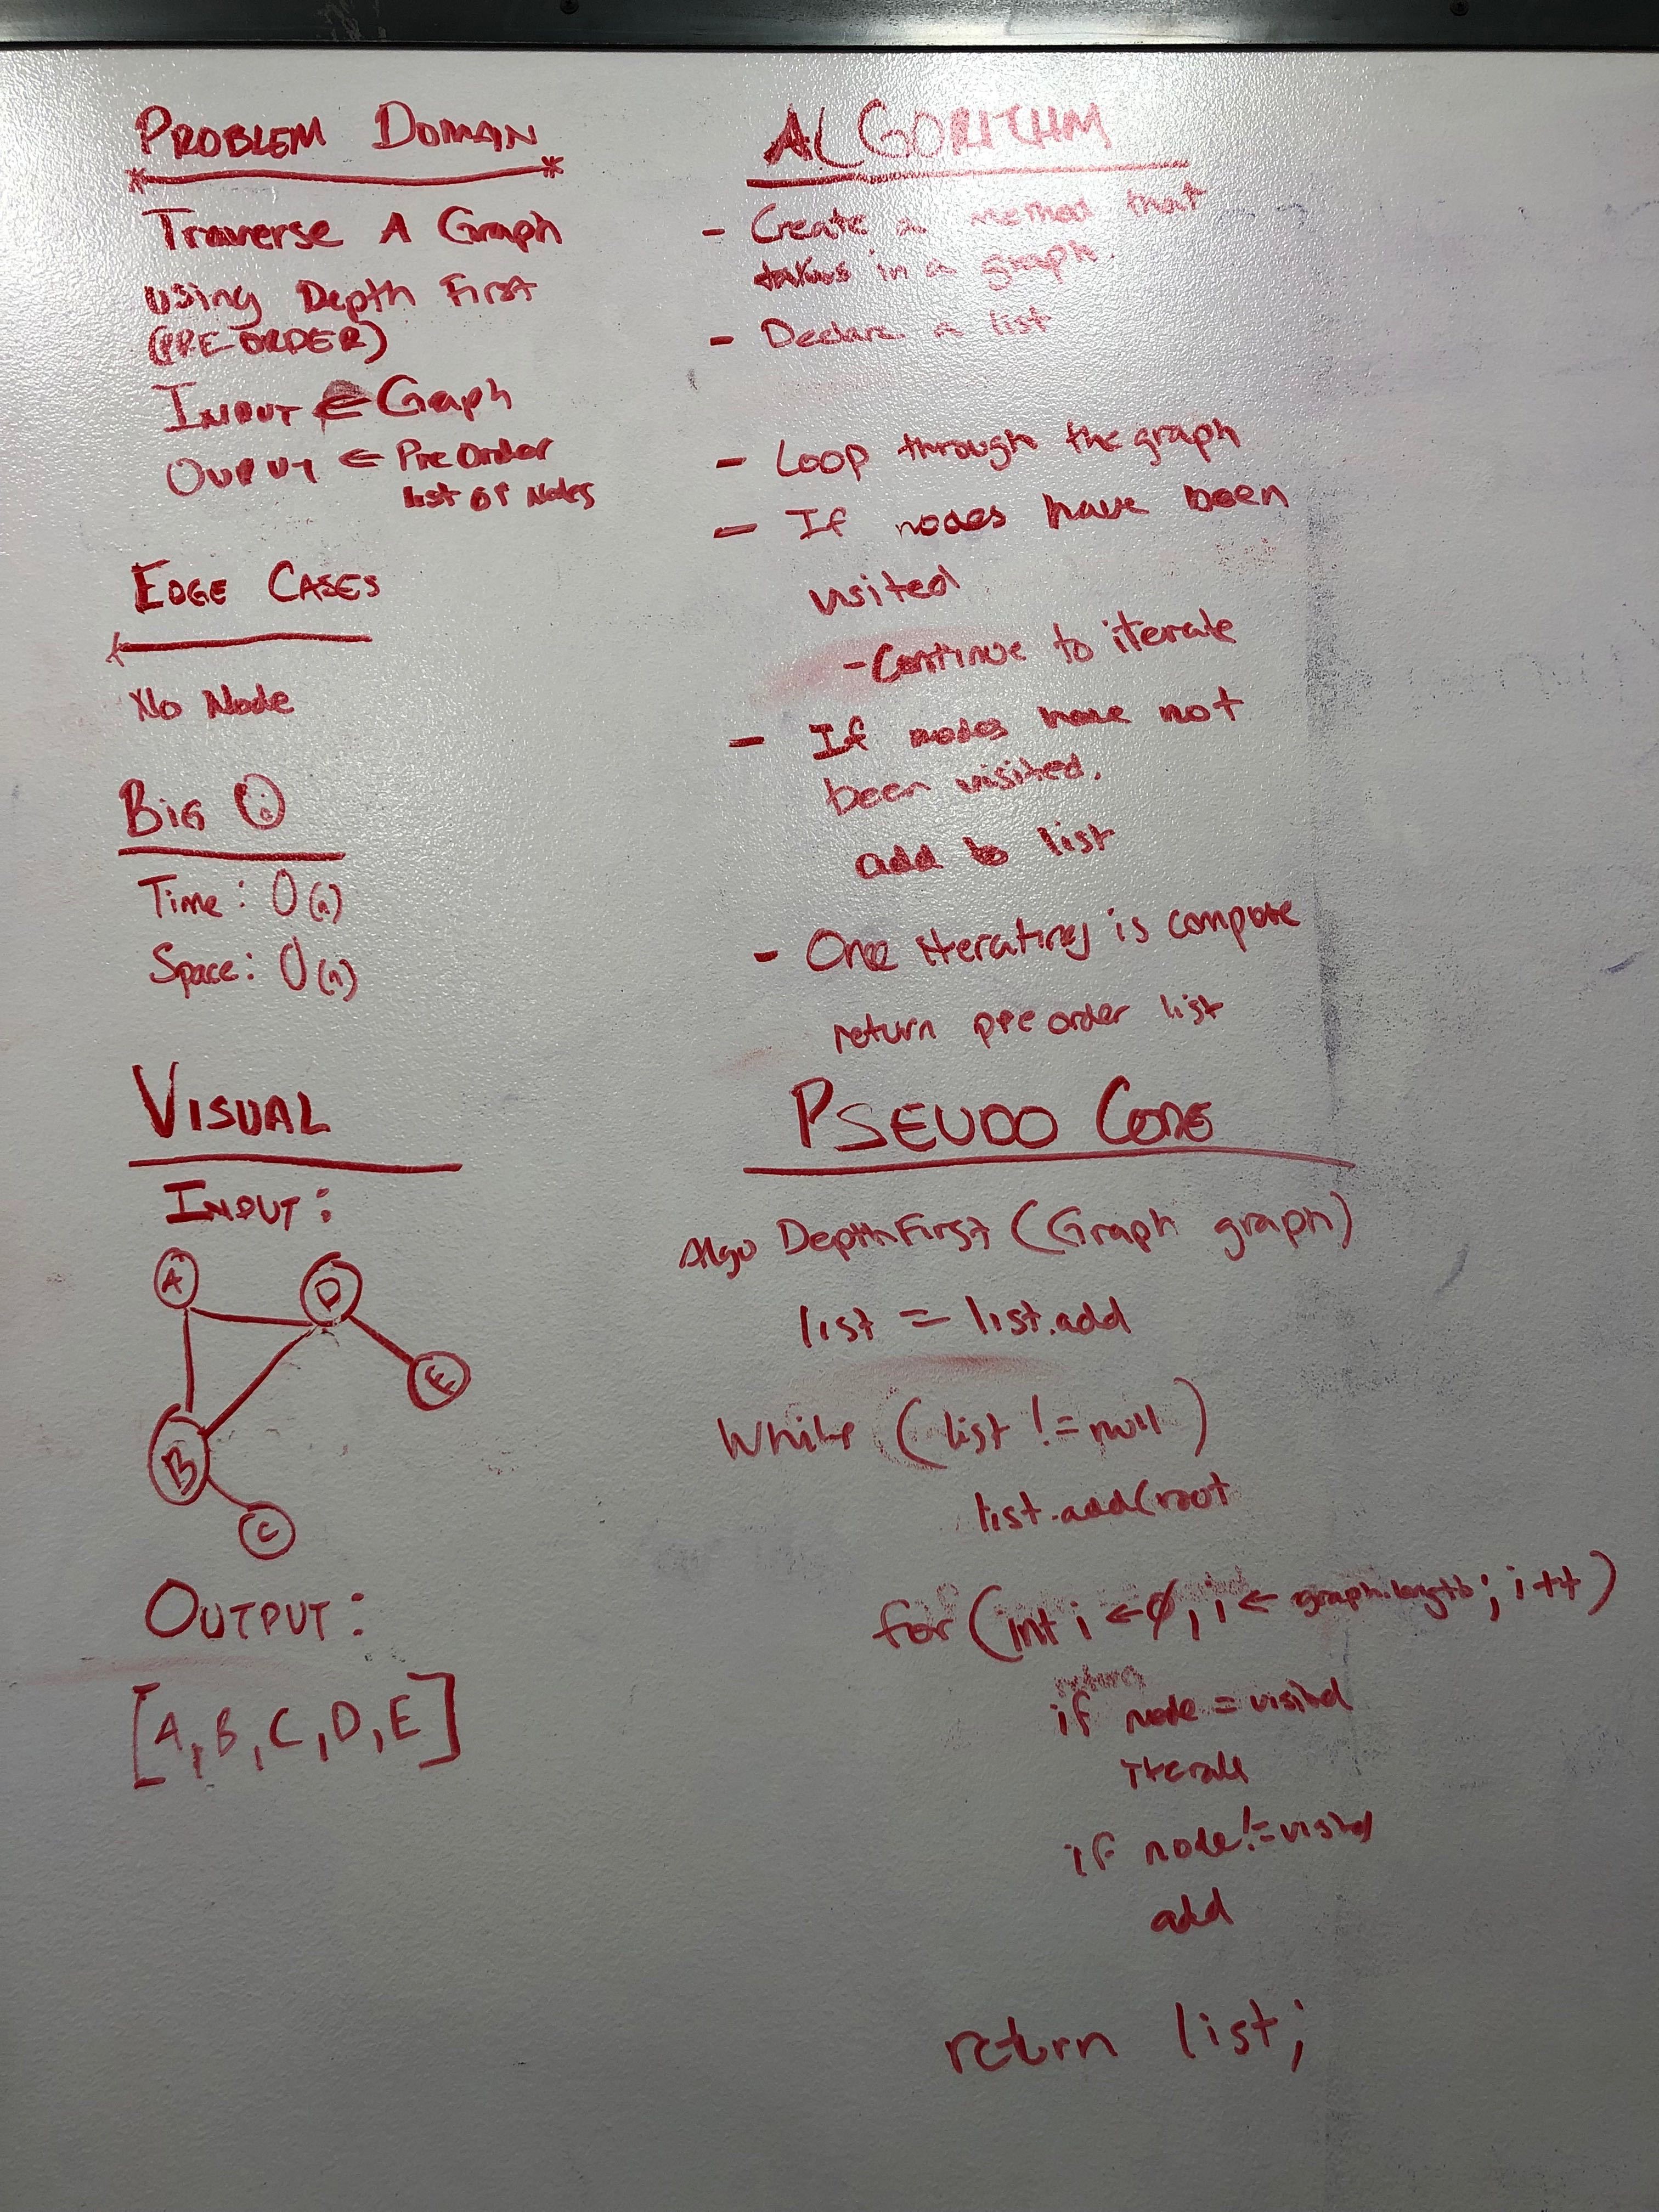 PROBLEM DOMAIN
Traverse A Graph
using Depth First
(PRE-ORDER)
INPUT ← Graph
OUTPUT ← PreOrder
list of Nodes
EDGE CASES
No Node
BIG O
Time: O(n)
Space: O(n)
VISUAL
INPUT:
A
D
E
B
C
OUTPUT:
[A, B, C, D, E]
ALGORITHM
- Create a method that
takes in a graph.
- Declare a list
- Loop through the graph
- If nodes have been
visited
- Continue to iterate
- If nodes have not
been visited.
add to list
- One iterating is compute
return pre order list
PSEUDO CODE
Algo DepthFirst (Graph graph)
list = list.add
While (list != null)
list.add(root
for (int i ← 0, i ← graph.length; i++)
return
if node = visited
iterate
if node != visited
add
return list;